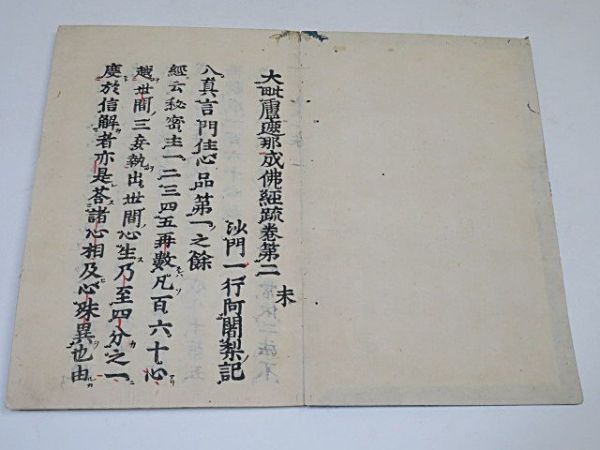 大毗盧遮那成佛經䟽卷第二 末
沙門一行阿闍梨記
入真言門住心品第一之餘
經云秘密主一二三四五再數凡百六十心
越世間三妄執出世間心生乃至四分之一
度於信解者亦是荅諸心相及心殊異也由